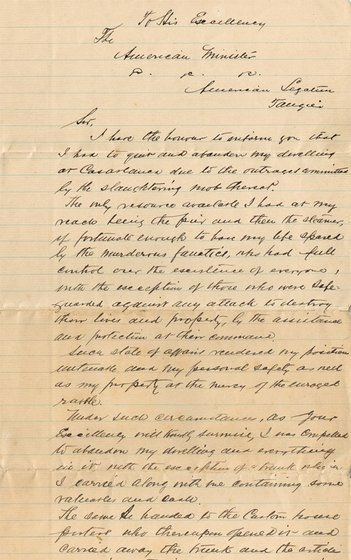 To His Excellency
The
American Minister
American Legation
Tangier
Sir,
I have the honour to inform you that
I had to quit and abandon my dwelling
at Casablanca due to the outrages committed
by the slaughtering mob thereat.
The only resource available I had at my
reach being the pier and then the steamer,
if fortunate enough to have my life spared
by the murderous fanatics, who had full
control over the existence of everyone,
with the exception of those who were safe
guarded against any attack to destroy
their lives and property, by the assistance
and protection at their command.
Such state of affairs rendered my position
untenable and my personal safety as well
as my property at the mercy of the enraged
rabble.
Under such circumstance, as Your
Excellency will kindly surmise, I was compelled
to abandon my dwelling and everything
in it with the exception of a trunk which
I carried along with me containing some
valuables and cash.
The same I handed to the Custom house
porters who thereupon opened it and
carried away the trunk and the article